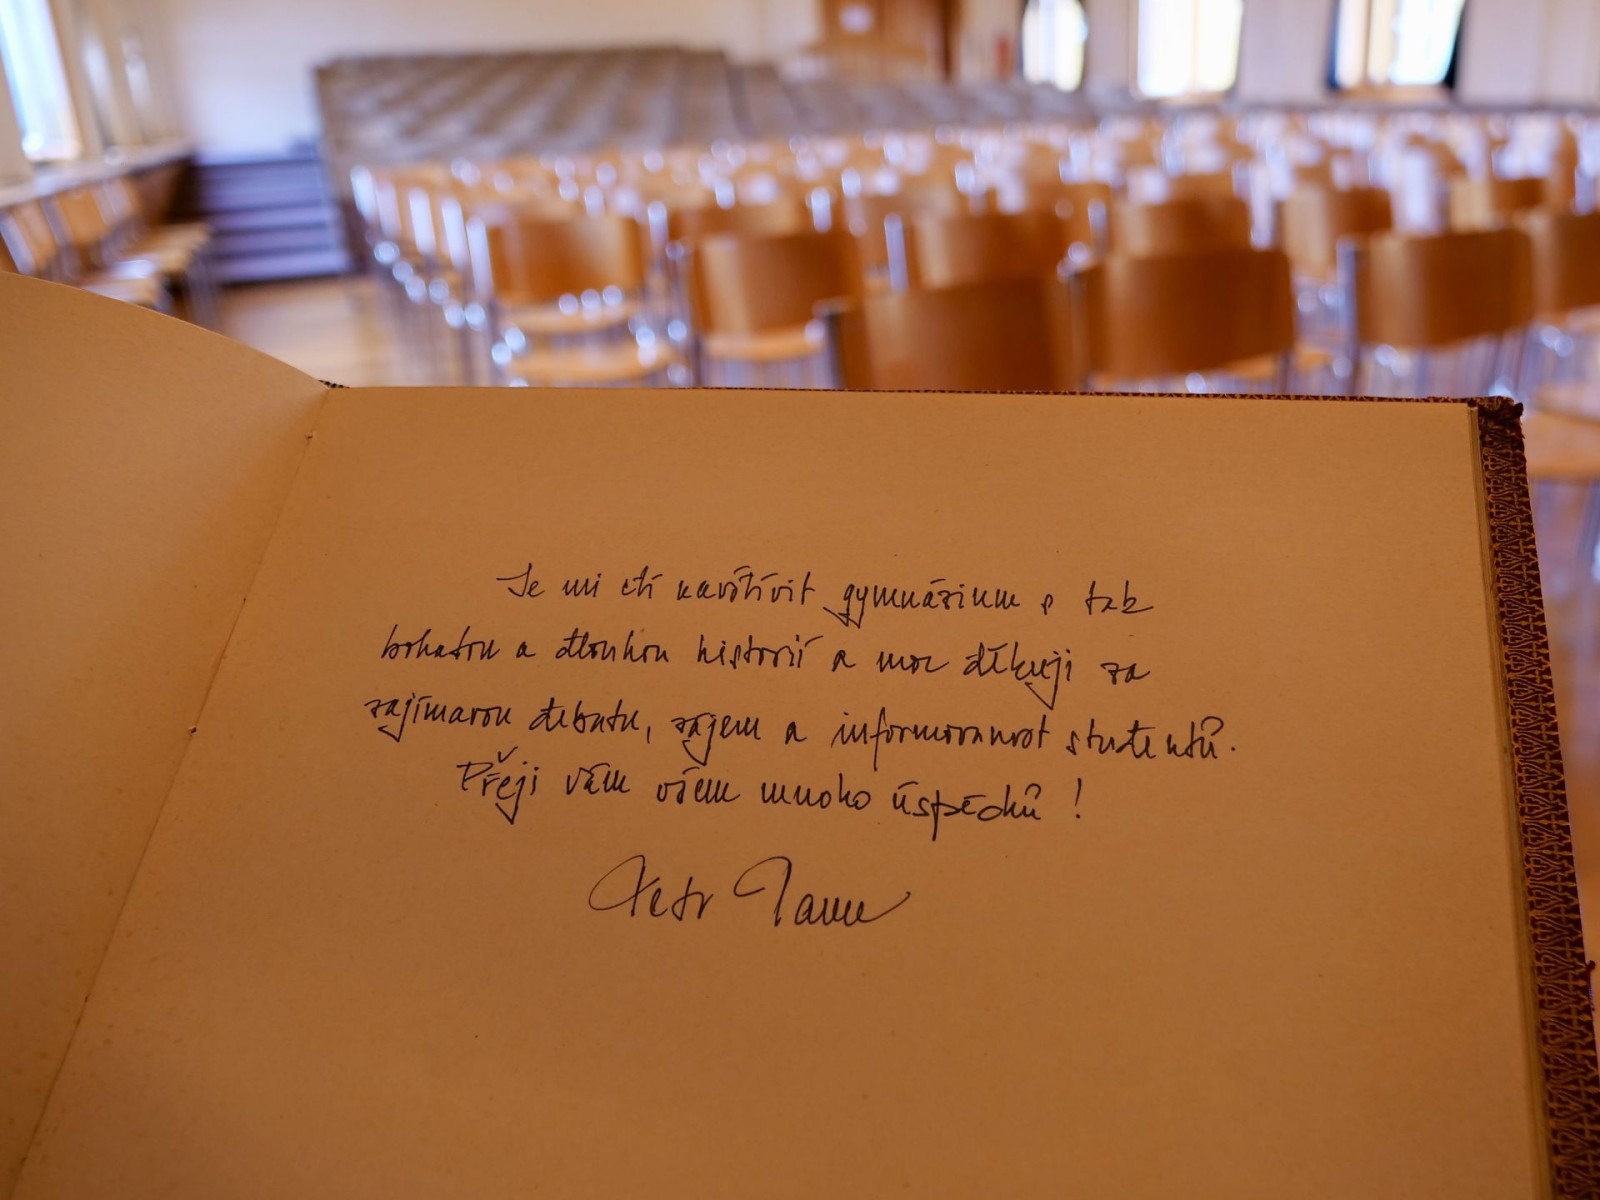 Je mi ctí navštívit gymnázium s tak
bohatou a dlouhou historií a moc děkuji za
zajímavou debatu, zájem a informovanost studentů.
Přeji vám všem mnoho úspěchů!
Petr